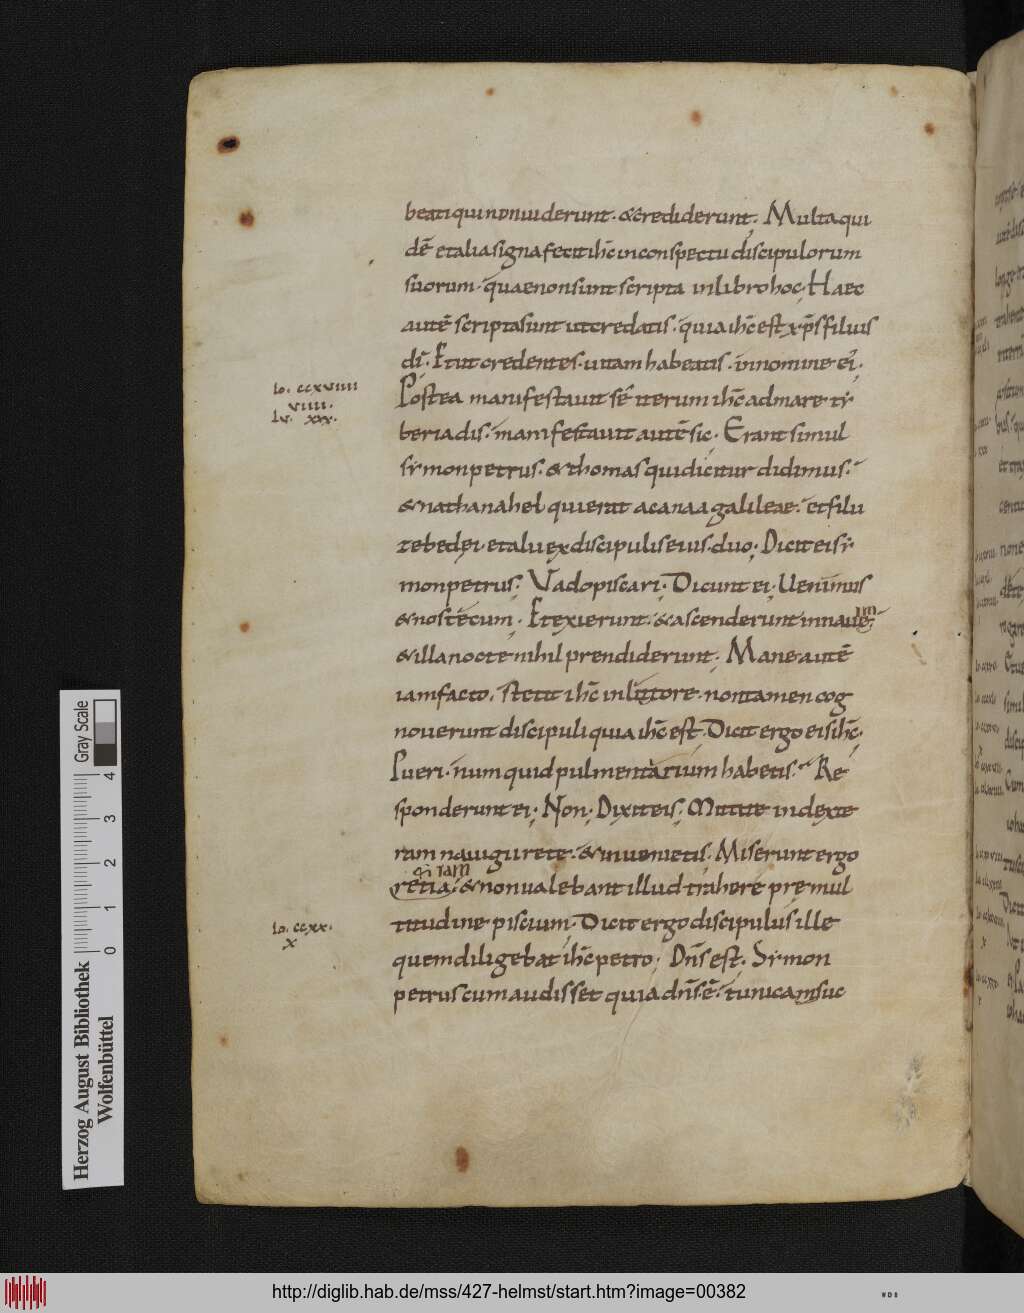 beati qui non uiderunt. & crediderunt; Multa qui
dē et alia signa fecit ihc̄ in conspectu discipulorum
suorum. quae non sunt scripta in libro hoc; Haec
autē scripta sunt ut credatis. quia ihc̄ est xp̄s filius
dī; Et ut credentes. uitam habeatis. in nomine ei;
Io. ccxviiii
Postea manifestauit sē iterum ihc̄ ad mare ty
viiii.
Lu. xxx.
beriadis. manifestauit autē sic; Erant simul
symon petrus. & thomas qui dicitur didimus.
& nathanahel qui erat a canaa galileae. et filii
zebedei. et alii ex discipulis eius duo; Dicit ei sy
mon petrus; Vado piscari; Dicunt ei; Uenimus
& nos tēcum; Et exierunt. & ascenderunt in naue
im
& illa nocte nihil prendiderunt; Mane autē
iam facto. stetit ihc̄ in littore. non tamen cog
nouerunt discipuli quia ihc̄ est; Dicit ergo eis ihc̄;
Pueri. num quid pulmentarium habetis. Re
sponderunt ei; Non; Dixit eis; Mittite in dexte
ram nauigii rete. & inuenietis; Miserunt ergo
retia. & non ualebant illud trahere prę mul
Io. ccxx.
titudine piscium; Dicit ergo discipulus ille
x
quem diligebat ihc̄ petro; Dn̄s est; Symon
petrus cum audisset quia dn̄s ē. tunicam suc
Gray Scale
0 1 2 3 4
Herzog August Bibliothek
Wolfenbüttel
http://diglib.hab.de/mss/427-helmst/start.htm?image=00382